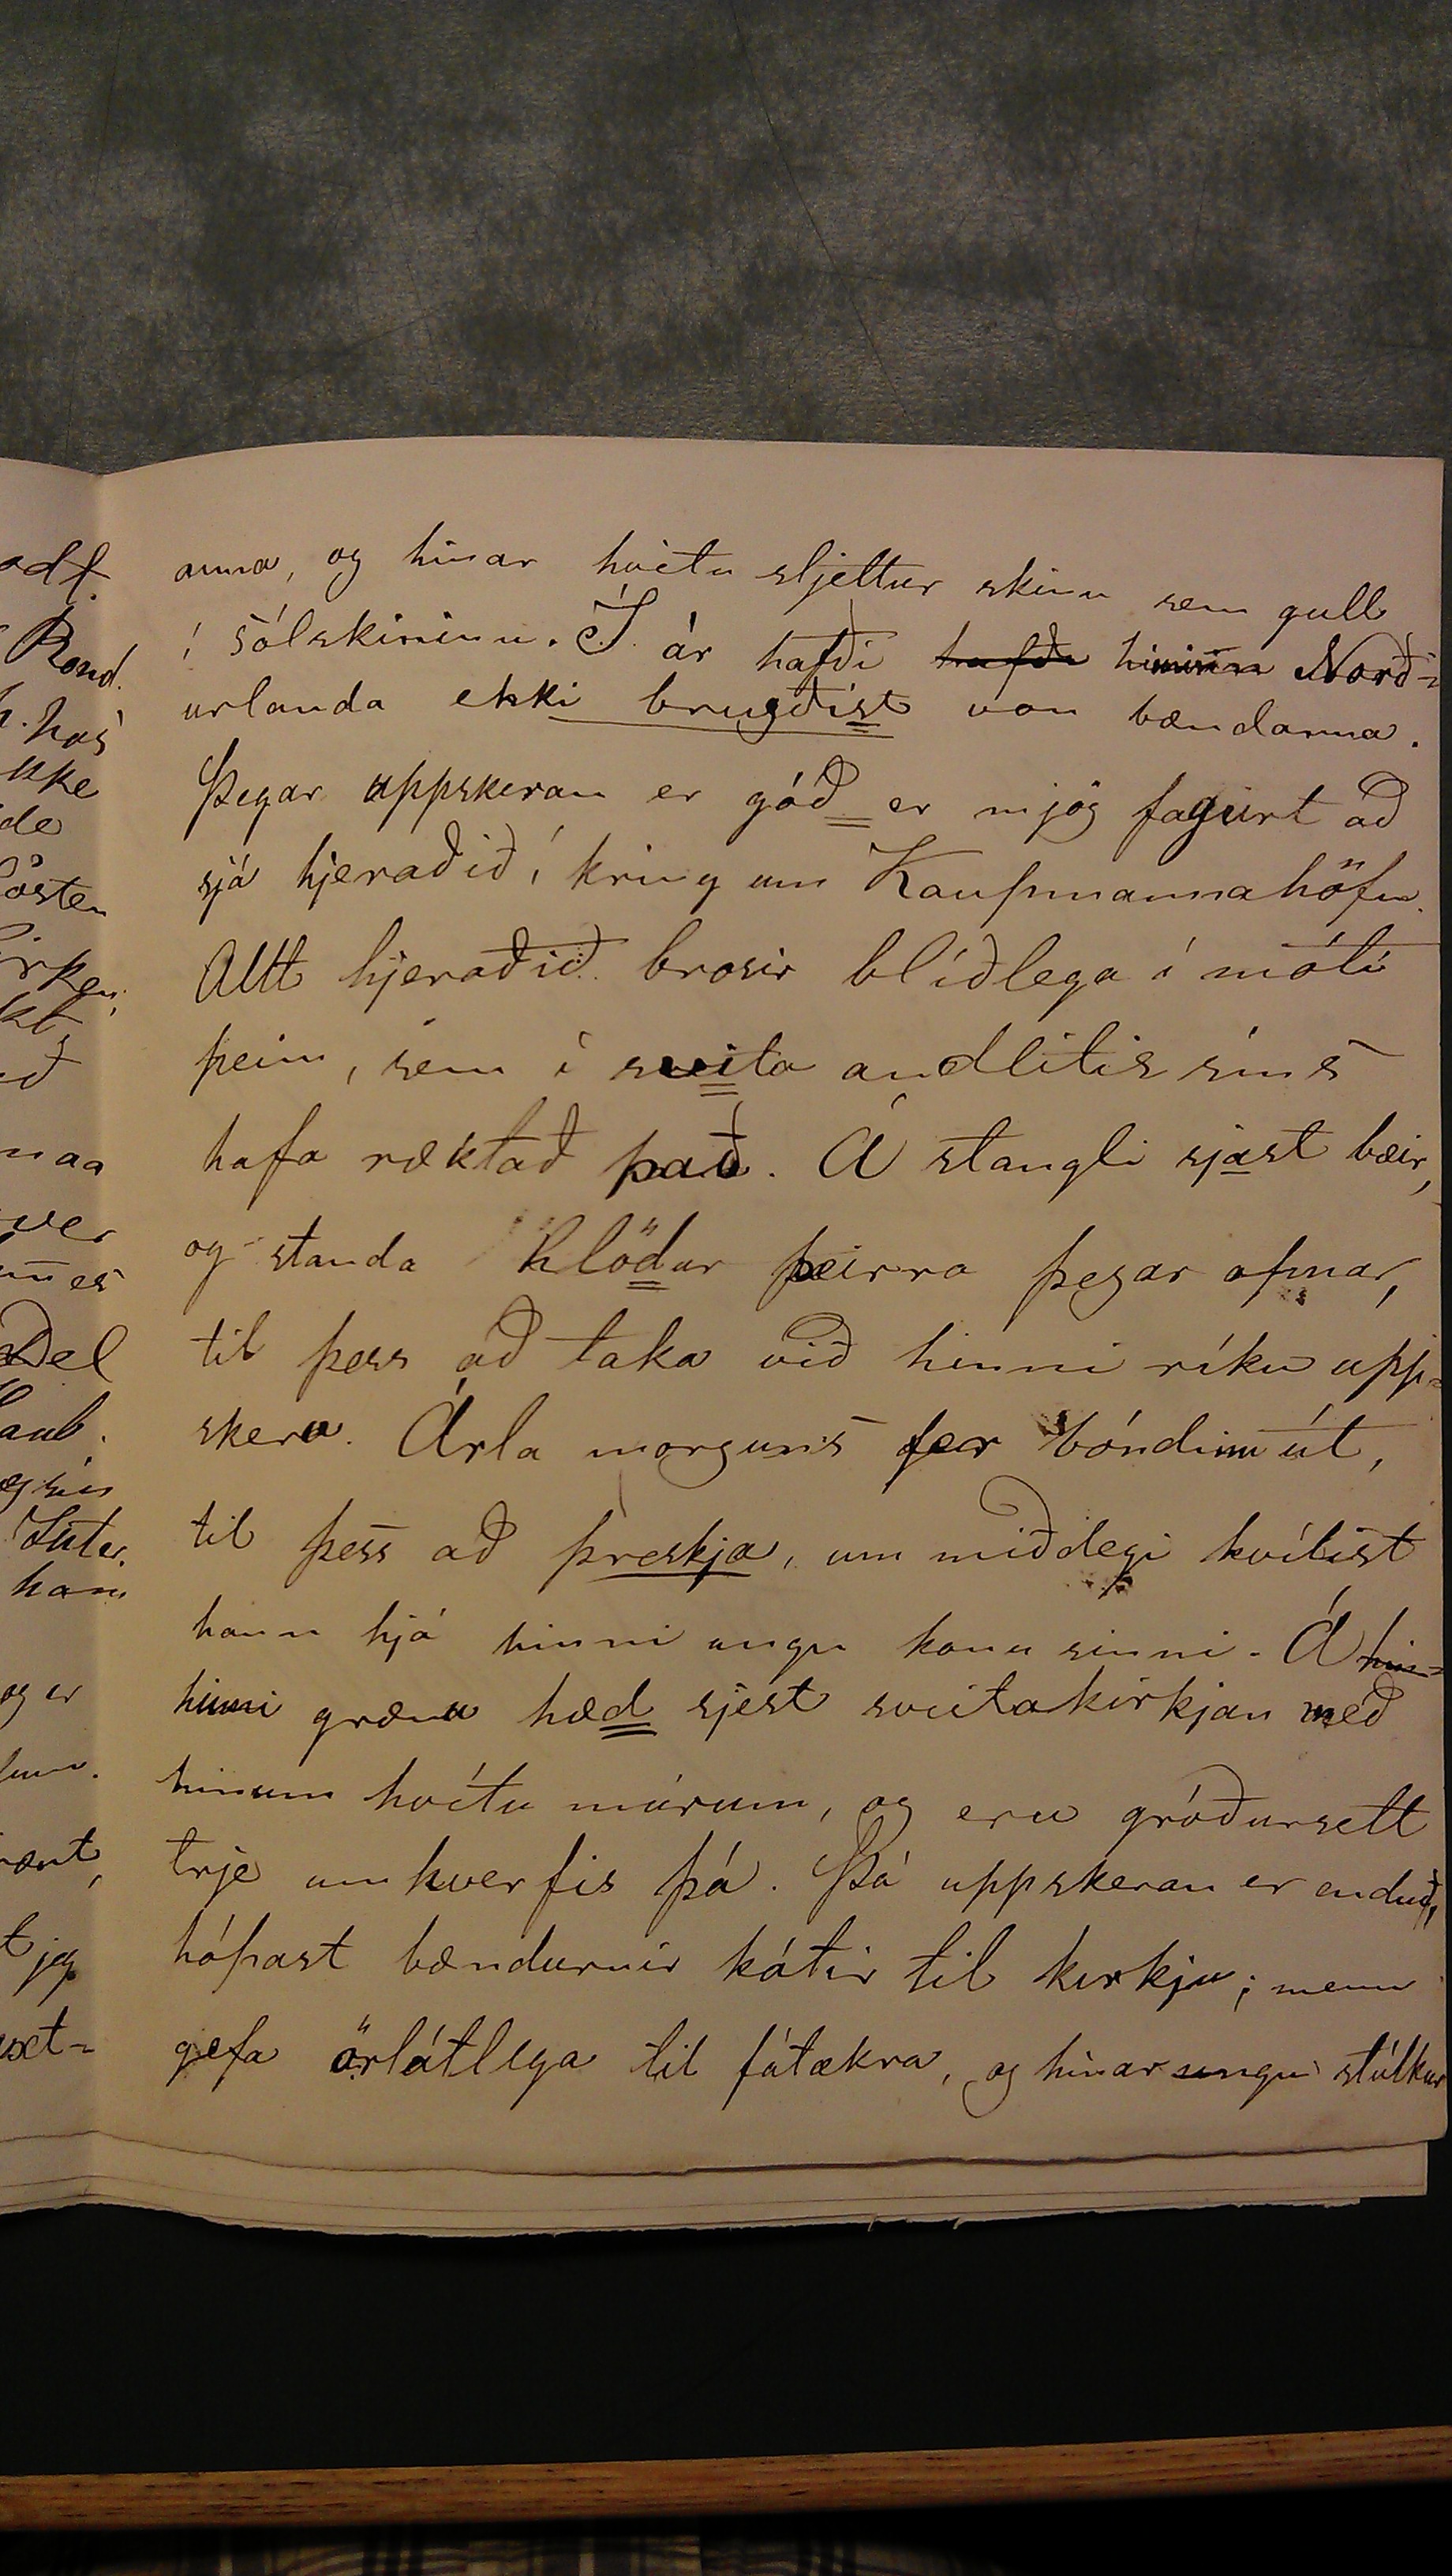 anna, og hinar hvítu sljettur skinu sem gull
í sólskininu. Í ár hafði hafði himinn Norð-
urlanda ekki brugðist von bændanna.
Þegar uppskeran er góð er mjög fagurt að
sjá hjeraðið í kring um Kaupmannahöfn.
Allt hjeraðið brosir blíðlega í móti
þeim, sem í sveita andlitis síns
hafa ræktað það. Á stangli sjast bæir,
og standa hlödur þeirra þegar opnar,
til þess að taka við hinni ríku upp-
skeru. Árla morguns fer bóndinn út,
til þess að þreskja, um miðdegi hvílist
hann hjá hinni ungu konu sinni. Á hin-
hinni grænu hæd sjest sveitakirkjan með
hinum hvítu múrum, og eru gróðursett
trje umhverfis þá. Þá uppskeran er enduð,
hópast bændurnir kátir til kirkju; menn
gefa örlátlega til fátækra, og hinar ungu stúlkur
adt.
Rond.
h. hos
kke
de
osten
irken
kt,
ð
naa
ver
es
Del
og er
t jeg